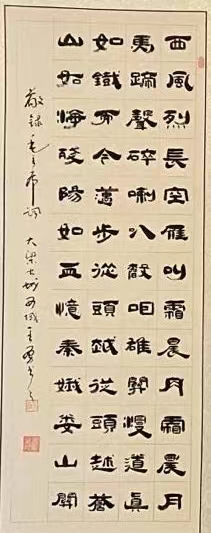 西風烈長空雁叫霜晨月霜晨月
馬蹄聲碎喇八聲咽雄關漫道真
如鐵而今邁步從頭越從頭越蒼
山如海殘陽如血憶秦娥婁山關
敬錄毛主席詞 大梁